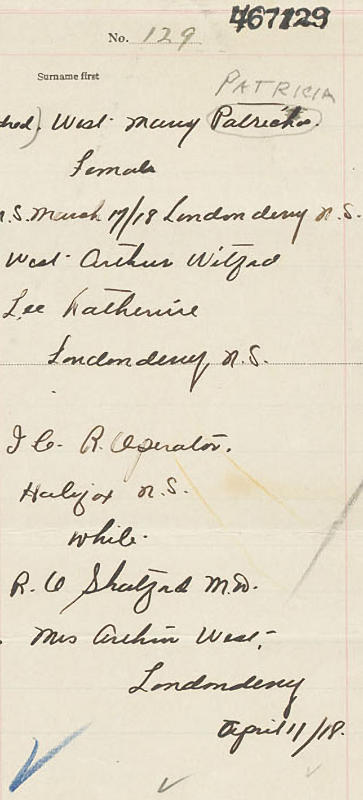 467129
No. 129
Surname first
PATRICIA
West Mary Patricia.
Female
N.S. March 17/18 Londonderry N.S.
West Arthur
Lee Katherine
Londonderry N.S.
I C. R. Operator.
Halifax N.S.
White.
R. O Shatford M.D.
Mrs Arthur West,
Londonderry
April 11/18.